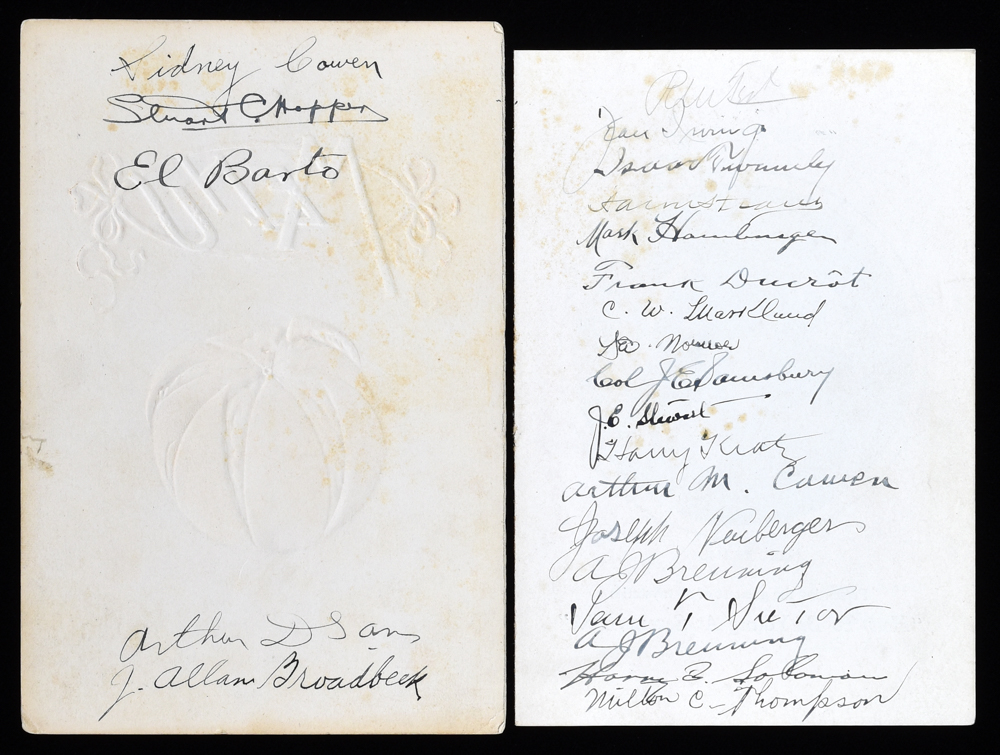 Sidney Cowen
Stuart C. Hopper
El Barto
Arthur D Gans
J. Allan Broadbeck
Dan Irving
Oscar Twamly
Mark Hamburger
Frank Ducrôt
C. W. Markland
Col J E Sainsbury
J. E. Stuart
Harry Kratz
Arthur M. Cowen
Joseph Neuberger
A J Breuning
Sam T Sutor
A J Breuning
Harry E. Solomon
Milton C. Thompson